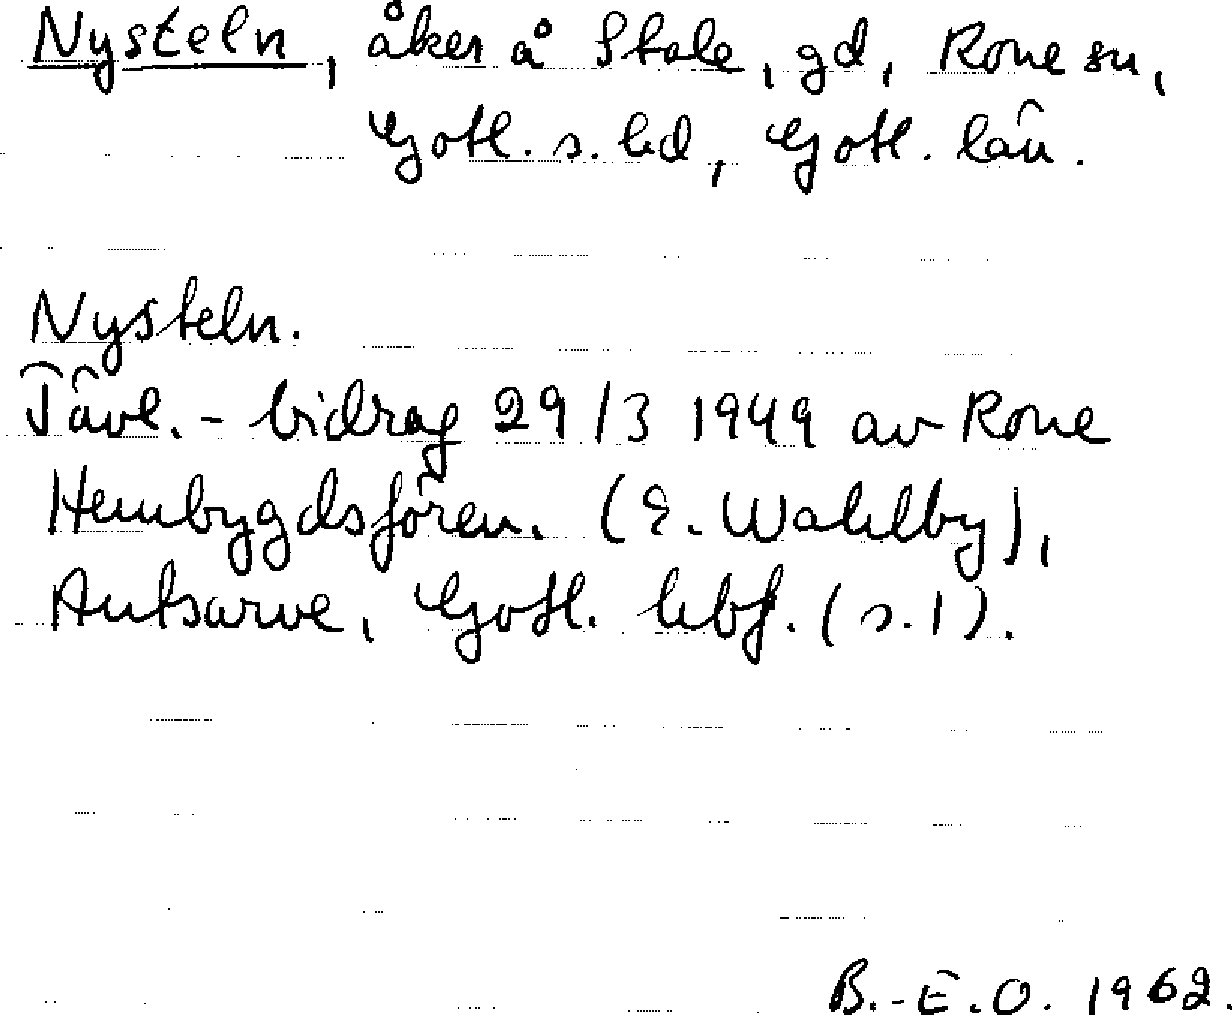 Nysteln, åker å Stale, gd, Rone sn,
Gotl. s. hd, Gotl. län.
Nysteln.
Tävl.-bidrag 29/3 1949 av Rone
Hembygdsfören. (E. Wahlby),
Autsarve, Gotl. hbf. (s. 1).
B.-E.O. 1962.